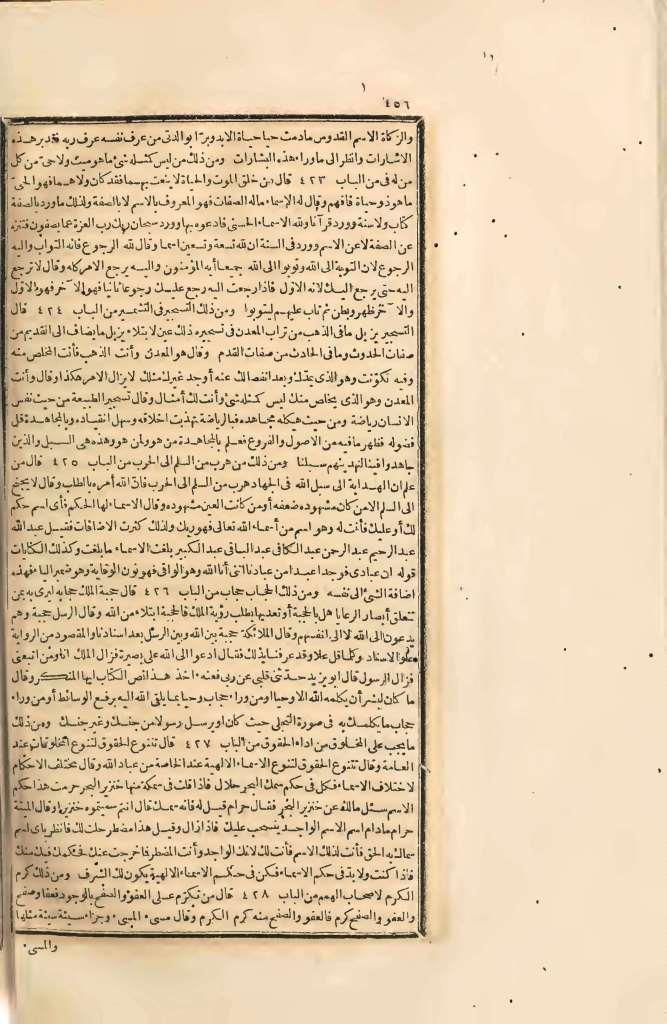 ٤٥٦
والزكاة الاسم القدوس مادمت حيا حياة الابد وبرّا بوالدتى من عرف نفسه عرف ربه فتدبر هذه
الاشارات وانظر الى ماوراء هذه البشارات ومن ذلك من ليس كمثله شئ ما هو ميت ولا حىّ من كل
من له فى من الباب ٤٢٣ قال من خلق الموت والحياة لا ينعت بهما فقد كان ولا هما فهو الحىّ
ما هو ذو حياة فافهم وقال له الاسماء ماله الصفات فهو المعروف بالاسم لا بالصفة ولذلك ما ورد بالصفة
كتاب ولا سنة وورد قرآنا ولله الاسماء الحسنى فادعوه بها وورد سبحان ربك رب العزة عما يصفون فتنزه
عن الصفة لا عن الاسم وورد فى السنة ان لله تسعة وتسعين اسما وقال لله الرجوع فانه التواب واليه
الرجوع لان التوبة الى الله وتوبوا الى الله جميعا أيه المؤمنون واليه يرجع الامر كله وقال لا ترجع
اليه حتى يرجع اليك لانه الاول فاذا رجعت اليه رجع عليك رجوعا ثانيا فهو الآخر فهو الاول
والآخر ظهر وبطن ثم تاب عليهم ليتوبوا ومن ذلك التسجير فى التشمير من الباب ٤٢٤ قال
التسجير يزيل ما فى الذهب من تراب المعدن فى تسجيره ذلك عين الابتلاء يزيل ما يضاف الى القديم من
صفات الحدوث وما فى الحادث من صفات القدم وقال هو المعدن وأنت الذهب فأنت المخلص منه
وفيه تكوّنت وهو الذى يمدّك وبعد انفصالك عنه أوجد غيرك مثلك لا يزال الامر هكذا وقال وأنت
المعدن وهو الذى يخلص منك ليس كمثله شئ وأنت لك أمثال وقال تسجير الطبيعة من حيث نفس
الانسان رياضة ومن حيث هيكله مجاهده فبالرياضة تهذبت اخلاقه وسهل انقياده وبالمجاهدة قل
فضوله فظهر ما فيه من الاصول والفروع فعلم بالمجاهدة من هو ولمن هو وهذه هى السبل والذين
جاهدوا فينا لنهدينهم سبلنا ومن ذلك من هرب من السلم الى الحرب من الباب ٤٢٥ قال من
علم ان الهداية الى سبل الله فى الجهاد هرب من السلم الى الحرب فان الله أمره بالطلب وقال لا يجنح
الى السلم الا من كان مشهوده ضعفه أو من كانت العين مشهوده وقال الاسماء لها الحكم فأى اسم حكم
لك أو عليك فأنت له وهو اسم من أسماء الله تعالى فهو ربك ولذلك كثرت الاضافات فقيل عبد الله
عبد الرحيم عبد الرحمن عبد الكافى عبد الباقى عبد الكبير بلغت الاسماء ما بلغت وكذلك الكنايات
قوله ان عبادى فوجدا عبدا من عبادنا اننى أنا الله وهو الواقى فهو نون الوقاية وهو ضمير الياء فهذه
اضافة الشئ الى نفسه ومن ذلك الحجاب حجاب من الباب ٤٢٦ قال حجبة الملك حجابه ليرى به من
تتعلق أبصار الرعايا هل بالحجبة أو تعديها بطلب رؤية الملك فالحجبة ابتلاء من الله وقال الرسل حجبة وهم
يدعون الى الله لا الى انفسهم وقال الملائكة حجبة بين الله وبين الرسل بعد اسنادنا والمقصود من الرواية
علوّ الاسناد وكلما قل علا وقد عرفنا بذلك فقال ادعوا الى الله على بصيرة فزال الملك انا ومن اتبعنى
فزال الرسول قال ابو يزيد حدّثنى قلبى عن ربى فعنه اخذ هذا نص الكتاب ايها المنكر وقال
ما كان لبشر أن يكلمه الله الا وحيا او من وراء حجاب وحيا بما يلقى الله اليه برفع الوسائط أو من وراء
حجاب ما يكلمك به فى صورة التجلى حيث كان او يرسل رسولا من جنسك وغير جنسك ومن ذلك
ما يجب على المخلوق من اداء الحقوق من الباب ٤٢٧ قال تتنوع الحقوق لتنوع المخلوقات عند
العامة وقال تتنوع الحقوق لتنوع الاسماء الالهية عند الخاصة من عباد الله وقال مختلف الاحكام
لاختلاف الاسماء فكل فى حكم سمك البحر حلال فاذا قلت فى سمكة منها خنزير البحر حرمت هذا حكم
الاسم سئل مالك عن خنزير البحر فقال حرام قيل له فانه سمك قال انتم سميتموه خنزيرا وقال الميتة
حرام مادام اسم الاسم الواجد ينسحب عليك فاذا زال وقيل هذا مضطر حلت لك فانظر بأى اسم
سمالك به الحق فأنت لذلك الاسم فأنت لك لانك الواجد وأنت المضطر فما خرجت عنك فحكمك فيك منك
فاذا كنت ولا بدّ فى حكم الاسماء فكن فى حكم الاسماء الالهية يكون لك الشرف ومن ذلك كرم
الكرم لاصحاب الهمم من الباب ٤٢٨ قال من تكرّم على العفو والصفح بالوجود فعفا وصفح
والعفو والصفح كرم فالعفو والصفح منه كرم الكرم وقال مسىء المسىء وجزاء سيئة سيئة مثلها
والمسىء